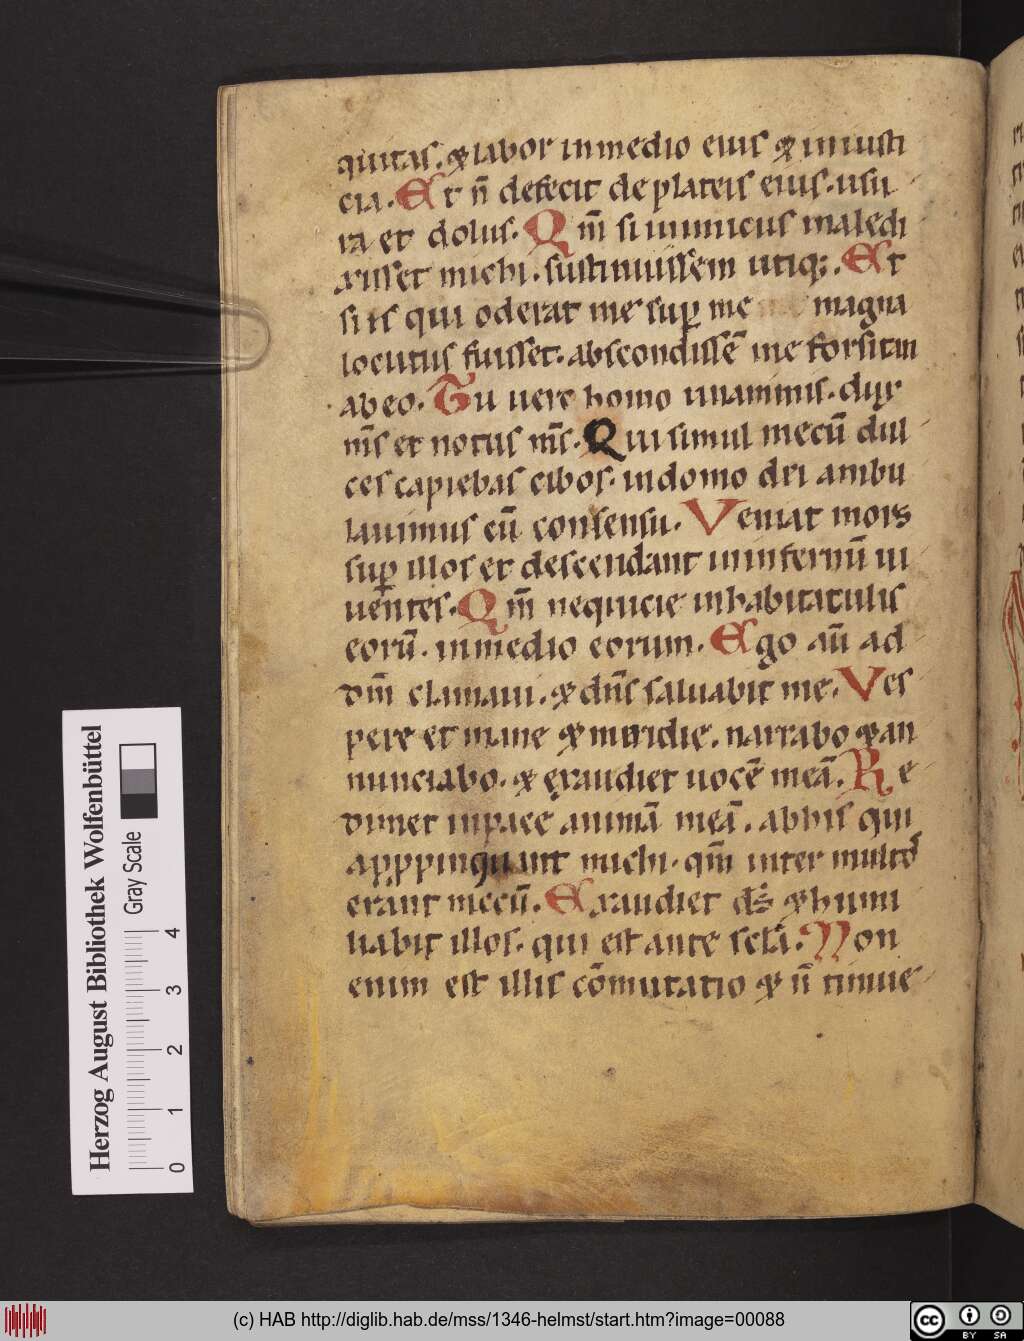 quitas. & labor in medio eius & iniusti
cia. Et n̄ defecit de plateis eius. usu
ra et dolus. Qm̄ si inimicus maledi
xisset michi. sustinuissem utiq;. Et
si is qui oderat me sup me magna
locutus fuisset. abscondissē me forsitan
ab eo. Tu uere homo unanimis. dux
m̄s et notus m̄s. Qui simul mecū dul
ces capiebas cibos. in domo dei ambu
lauimus cū consensu. Veniat mors
sup illos et descendant in infernū ui
uentes. Qm̄ nequicie in habitaculis
eorū. in medio eorum. Ego aū ad
dm̄ clamaui. & dn̄s saluabit me. Ves
pere et mane & meridie. narrabo & an
nunciabo. & exaudiet uocē meā. Re
dimet in pace animā meā. ab his qui
appropinquant michi. qm̄ inter multos
erant mecū. Exaudiet ds̄ & humi
liabit illos. qui est ante sclā. Non
enim est illis cōmutatio & n̄ timue
Herzog August Bibliothek Wolfenbüttel
Gray Scale
0 1 2 3 4
(c) HAB http://diglib.hab.de/mss/1346-helmst/start.htm?image=00088
cc BY SA